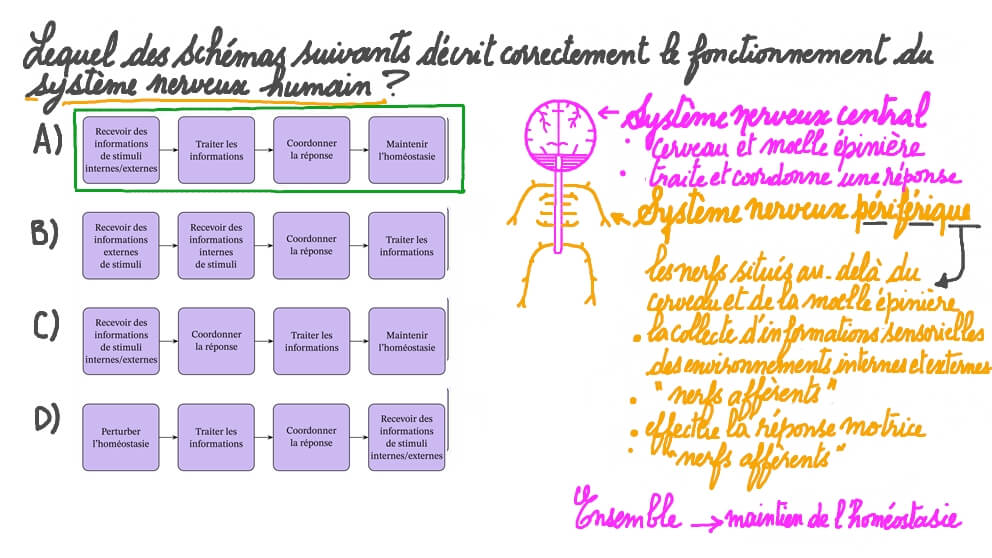 Lequel des schémas suivants décrit correctement le fonctionnement du
système nerveux humain ?
A)
Recevoir des
informations
de stimuli
internes/externes
Traiter les
informations
Coordonner
la réponse
Maintenir
l'homéostasie
B)
Recevoir des
informations
externes
de stimuli
Recevoir des
informations
internes
de stimuli
Coordonner
la réponse
Traiter les
informations
C)
Recevoir des
informations
de stimuli
internes/externes
Coordonner
la réponse
Traiter les
informations
Maintenir
l'homéostasie
D)
Perturber
l'homéostasie
Traiter les
informations
Coordonner
la réponse
Recevoir des
informations
de stimuli
internes/externes
Système nerveux central
• cerveau et moelle épinière
• traite et coordonne une réponse
Système nerveux périférique
les nerfs situés au-delà du
cerveau et de la moelle épinière
• la collecte d'informations sensorielles
des environnements internes et externes
• "nerfs afférents"
• effectue la réponse motrice
• "nerfs afférents"
Ensemble → maintien de l'homéostasie